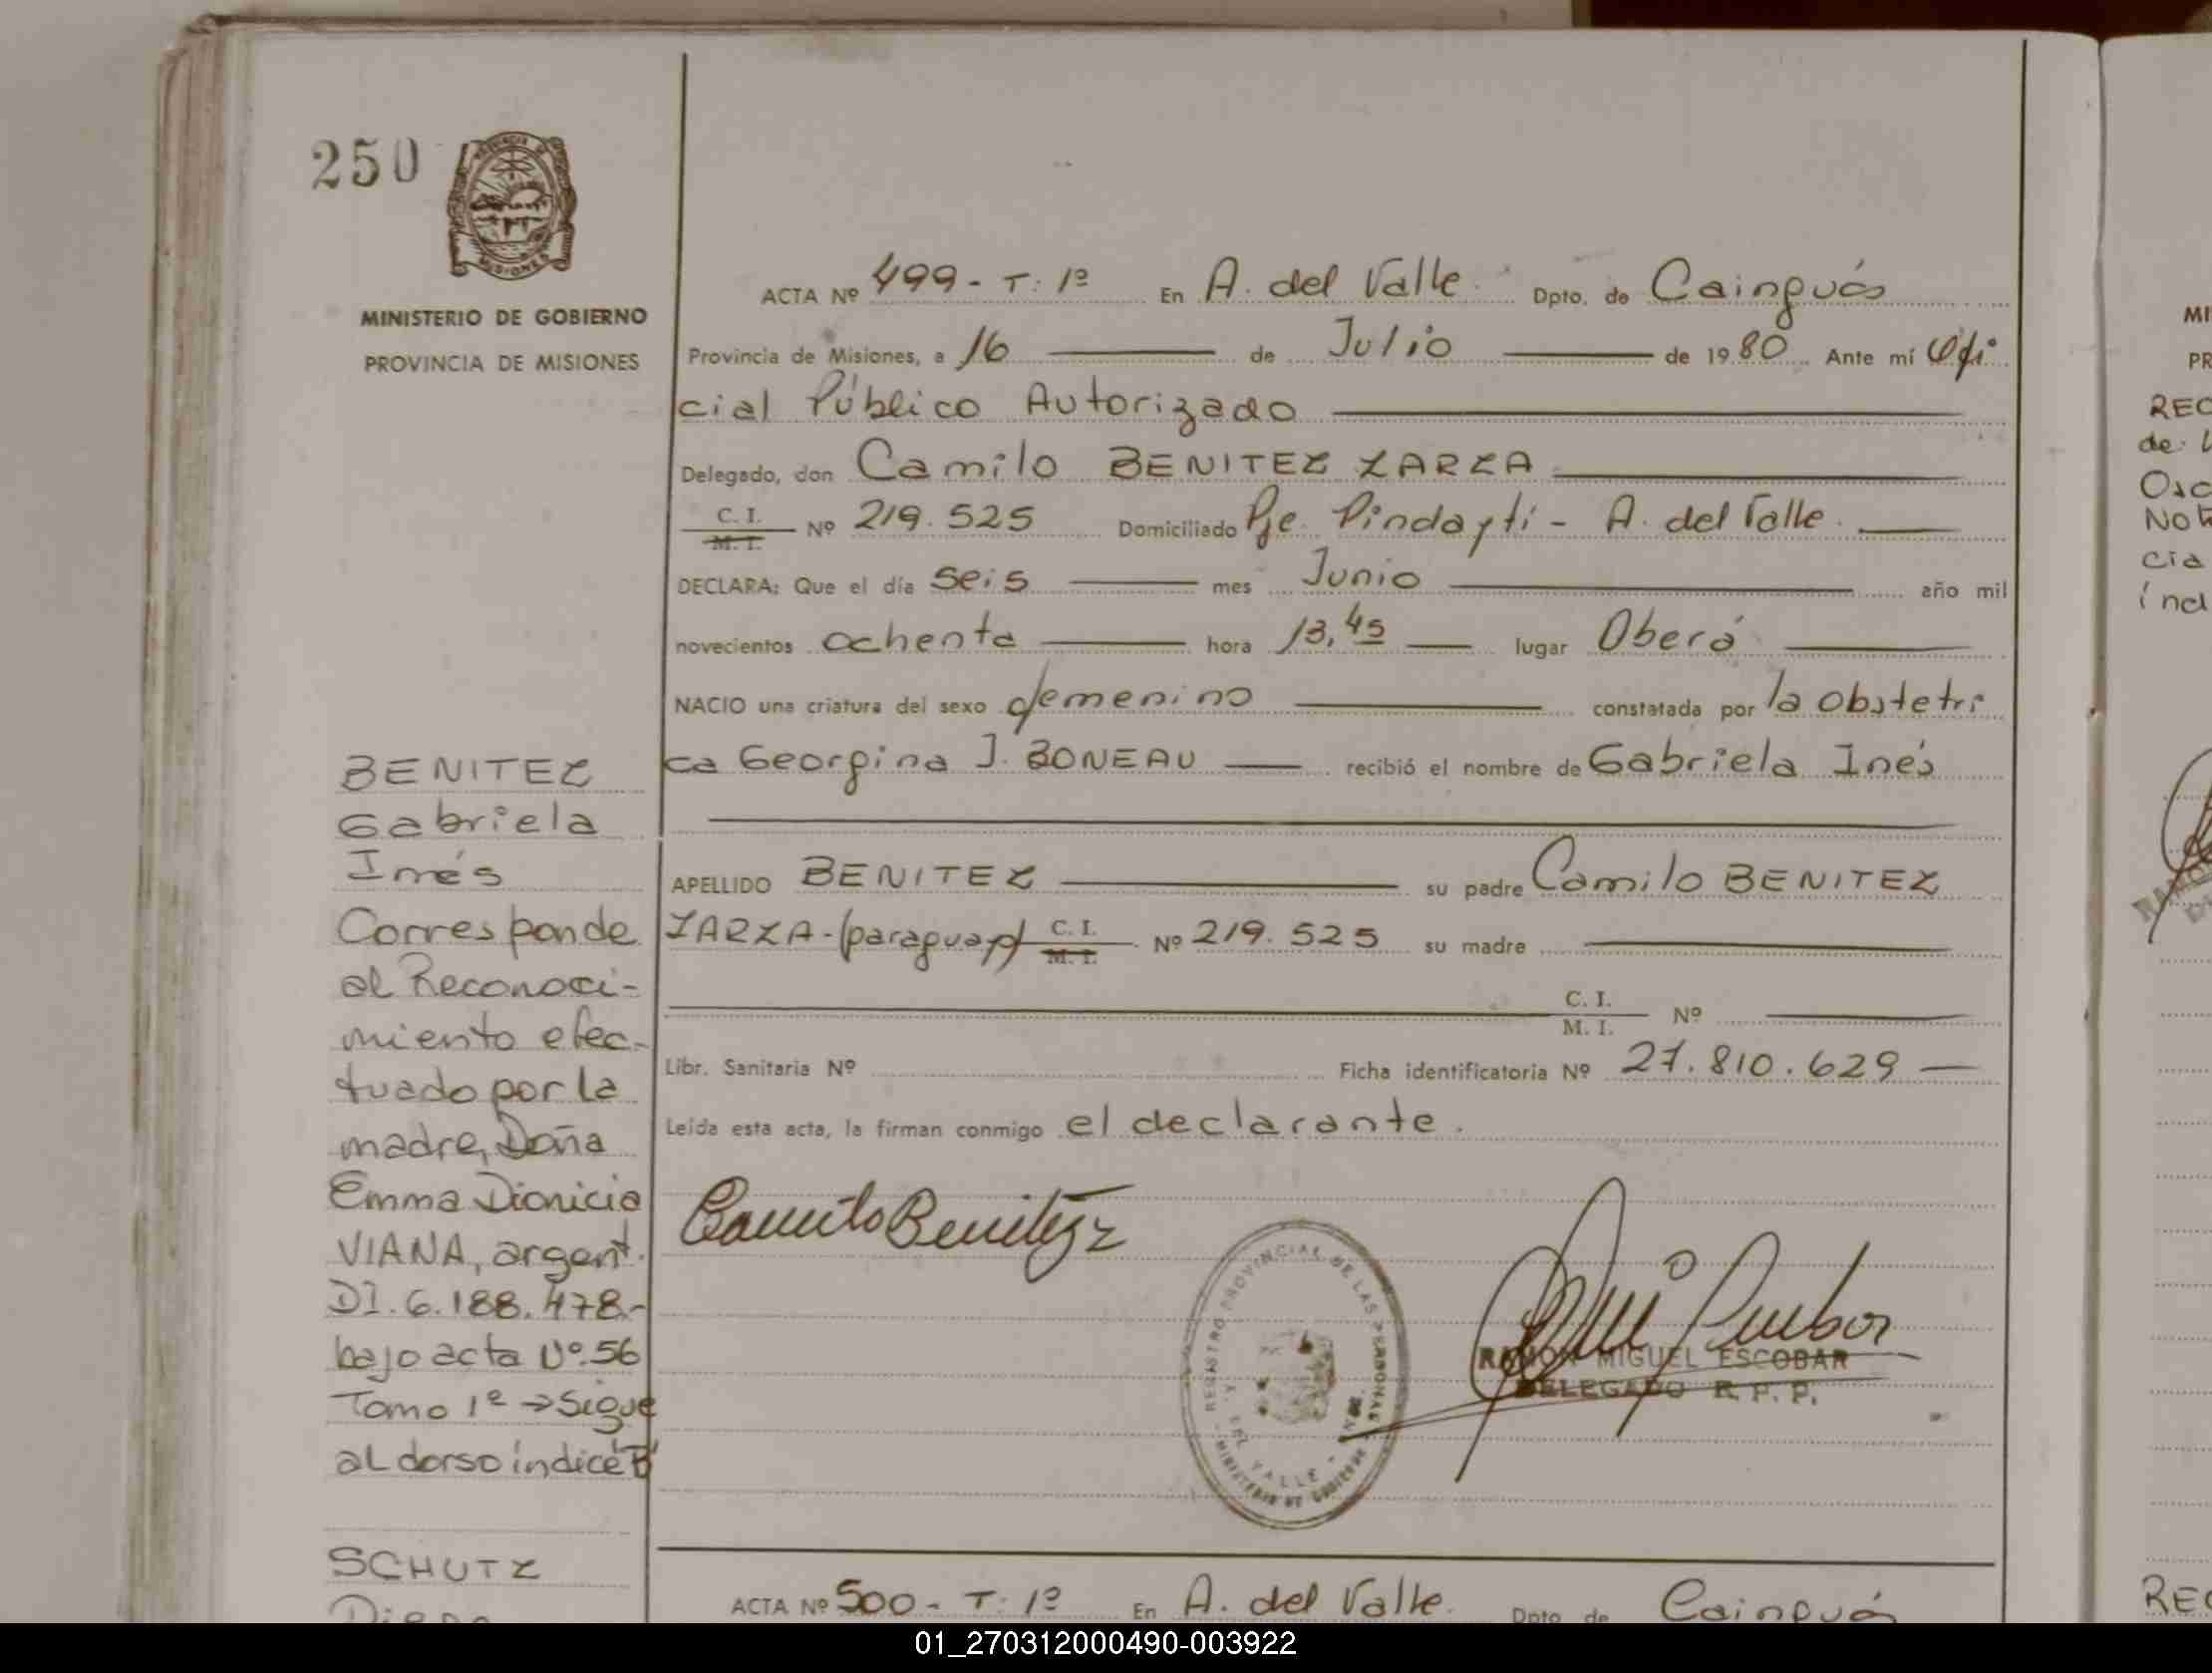 250
MINISTERIO DE GOBIERNO
PROVINCIA DE MISIONES
ACTA Nº 499 - T: 1º En A. del Valle Dpto. de Cainguás
Provincia de Misiones, a 16 de Julio de 1980 Ante mí Ofi
cial Público Autorizado
Delegado, don Camilo BENITEZ ZARZA
C. I.
M. I.
Nº 219.525 Domiciliado Pje. Pindaytí - A. del Valle.
DECLARA: Que el día seis mes Junio año mil
novecientos ochenta hora 13,45 lugar Oberá
NACIO una criatura del sexo femenino constatada por la obstetri
ca Georgina J. BONEAU recibió el nombre de Gabriela Inés
APELLIDO BENITEZ su padre Camilo BENITEZ
ZARZA - (paraguay) C. I.
M. I.
Nº 219.525 su madre
C. I.
M. I.
Nº
Libr. Sanitaria Nº Ficha identificatoria Nº 27.810.629
Leída esta acta, la firman conmigo el declarante.
Camilo Benitez
REGISTRO PROVINCIAL DE LAS PERSONAS
DEL VALLE
MINISTERIO DE GOBIERNO
RAMON MIGUEL ESCOBAR
DELEGADO R. P. P.
BENITEZ
Gabriela
Inés
Corresponde
al Reconoci-
miento efec-
tuado por la
madre, Doña
Emma Dionicia
VIANA, argent.
DI. 6.188.478.-
bajo acta Nº 56
Tomo 1º → Sigue
al dorso índice "B"
SCHUTZ
Diego
ACTA Nº 500 - T: 1º En A. del Valle. Dpto de Cainguás
MI
PR
REC
de: L
Osc
Not
cia
ind
REC
01_270312000490-003922